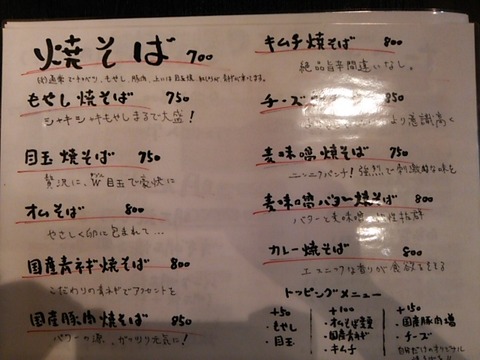 焼そば 700
もやし焼そば 750
シャキシャキもやしまるで大盛!
目玉焼そば 750
贅沢に、W目玉で豪快に
オムそば 800
やさしく卵に包まれて…
国産青ネギ焼そば 800
こだわりの青ネギでアクセントを
国産豚肉焼そば 850
パワーの源、ガッツリ元気に!
キムチ焼そば 800
絶品旨辛間違いなし。
チーズ
より意識高く
麦味噌焼そば 750
ニンニクパンチ!強烈で刺激的な味を
麦味噌バター焼そば 800
バターと麦味噌 相性抜群
カレー焼そば 800
エスニックな香りが食欲をそそる
トッピングメニュー
+50
・もやし
・目玉
+100
・オムそば変更
・国産青ネギ
・キムチ
+150
・国産豚肉増
・チーズ